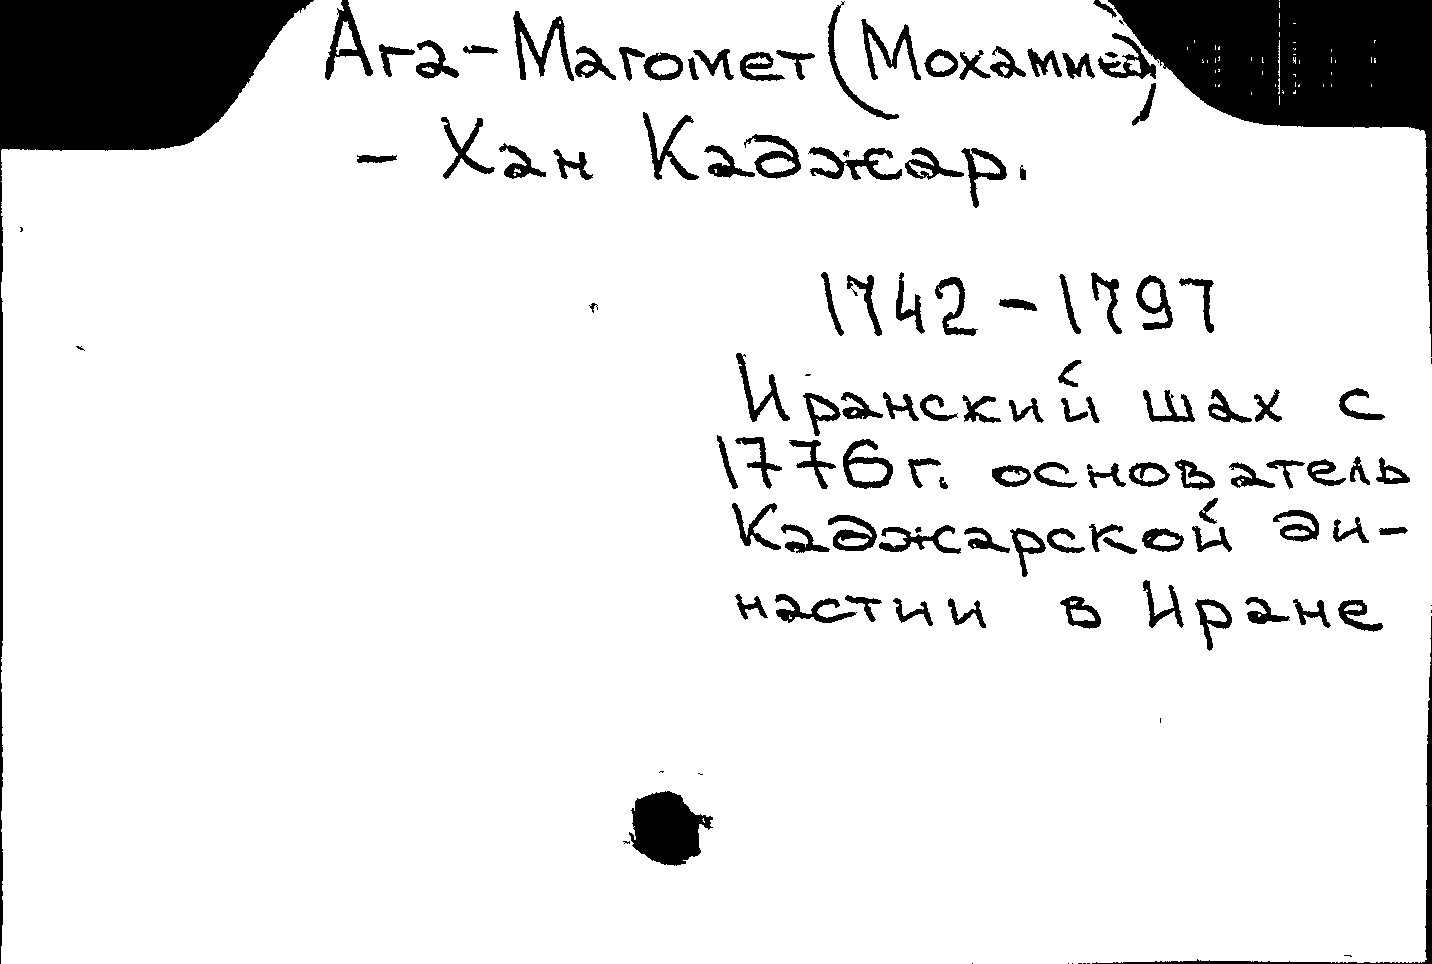 Ага-Магомет (Мохаммед)
- Хан Каджар.
1742-1797
Иранский шах с
1776 г. основатель
Каджарской ди-
настии в Иране